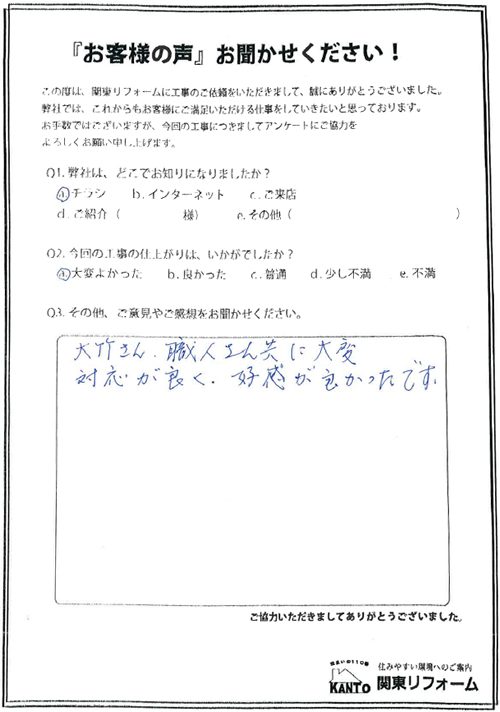 『お客様の声』お聞かせください！
この度は、関東リフォームに工事のご依頼をいただきまして、誠にありがとうございました。
弊社では、これからもお客様にご満足いただける仕事をしていきたいと思っております。
お手数ではございますが、今回の工事につきましてアンケートにご協力を
よろしくお願い申し上げます。
Q1. 弊社は、どこでお知りになりましたか？
a.チラシ b.インターネット c.ご来店
d.ご紹介（ 様） e.その他（ ）
Q2. 今回の工事の仕上がりは、いかがでしたか？
a.大変よかった b.良かった c.普通 d.少し不満 e.不満
Q3. その他、ご意見やご感想をお聞かせください。
大竹さん.職人さん共に大変
対応が良く.好感が良かったです
ご協力いただきましてありがとうございました。
住まいの110番
KANTO
住みやすい環境へのご案内
関東リフォーム